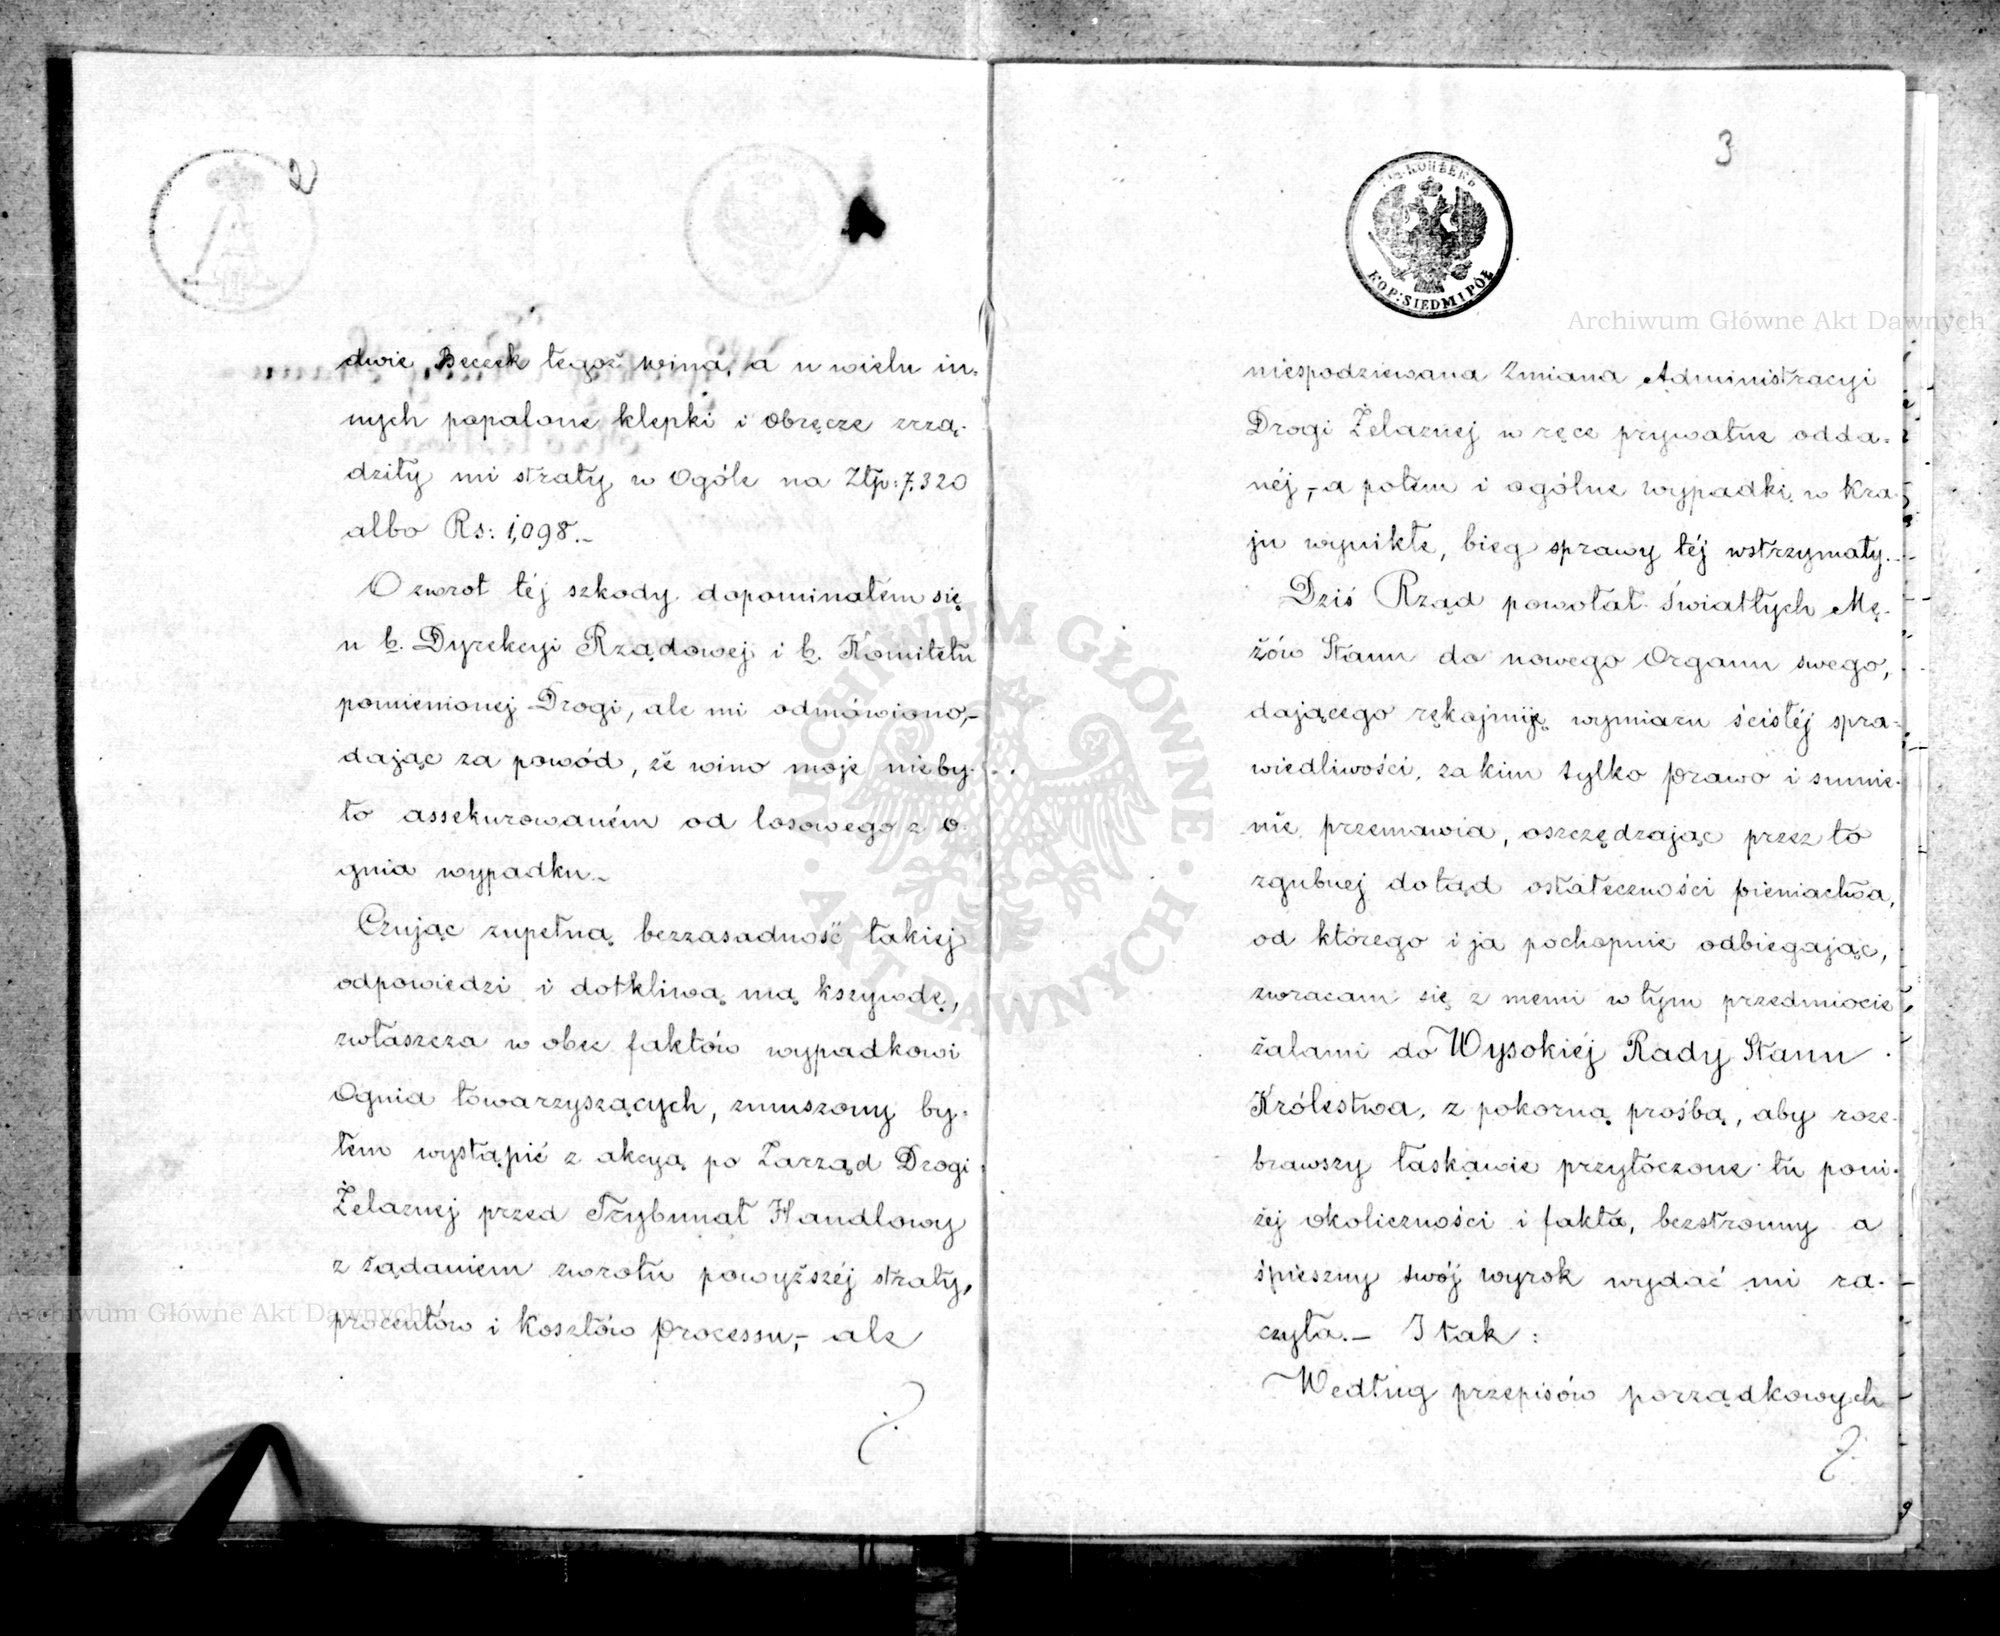 dwie, Beczek tegoż wina, a u wielu in-
nych popalone klepki i obręcze zrzą-
dziły mi straty w Ogóle na Złp: 7,320
albo Rs: 1,098.-
O zwrot téj szkody dopominałem się
u b. Dyrekcyi Rządowej i b. Komitetu
pomienionej Drogi, ale mi odmówiono,-
dając za powód, że wino moje nieby-
ło assekurowaném od losowego z o-
gnia wypadku.-
Czując zupełną bezzasadność takiej
odpowiedzi i dotkliwą mą kszywdę,
zwłaszcza w obec faktów wypadkowi
Ognia towarzyszących, zmuszony by-
łem wystąpić z akcyą po Zarząd Drogi
Żelaznej przed Trybunał Handlowy
z żądaniem zwrotu powyższéj straty,
procentów i Kosztów processu,- ale
3
KOP: SIEDM I PÓŁ
niespodziewana Zmiana Administracyi
Drogi Żelaznej w ręce prywatne odda-
néj,- a potem i ogólne wypadki w Kra-
ju wynikłe, bieg sprawy téj wstrzymały.-
Dziś Rząd powołał Światłych Mę-
żów Stanu do nowego Organu swego,
dającego rękojmiję wymiaru ścisłéj spra-
wiedliwości, za kim tylko prawo i sumie-
nie przemawia, oszczędzając przez to
zgubnej dotąd ostateczności pieniactwa,
od którego i ja pochopnie odbiegając,
zwracam się z memi w tym przedmiocie
żalami do Wysokiéj Rady Stanu
Królestwa, z pokorną prośbą, aby roze-
brawszy łaskawie przytóczone tu poni-
żej okoliczności i fakta, bezstronny a
śpieszny swój wyrok wydać mi ra-
czyła.- I tak:
Według przepisów porządkowych
Archiwum Główne Akt Dawnych
Archiwum Główne Akt Dawnych
ARCHIWUM GŁÓWNE AKT DAWNYCH